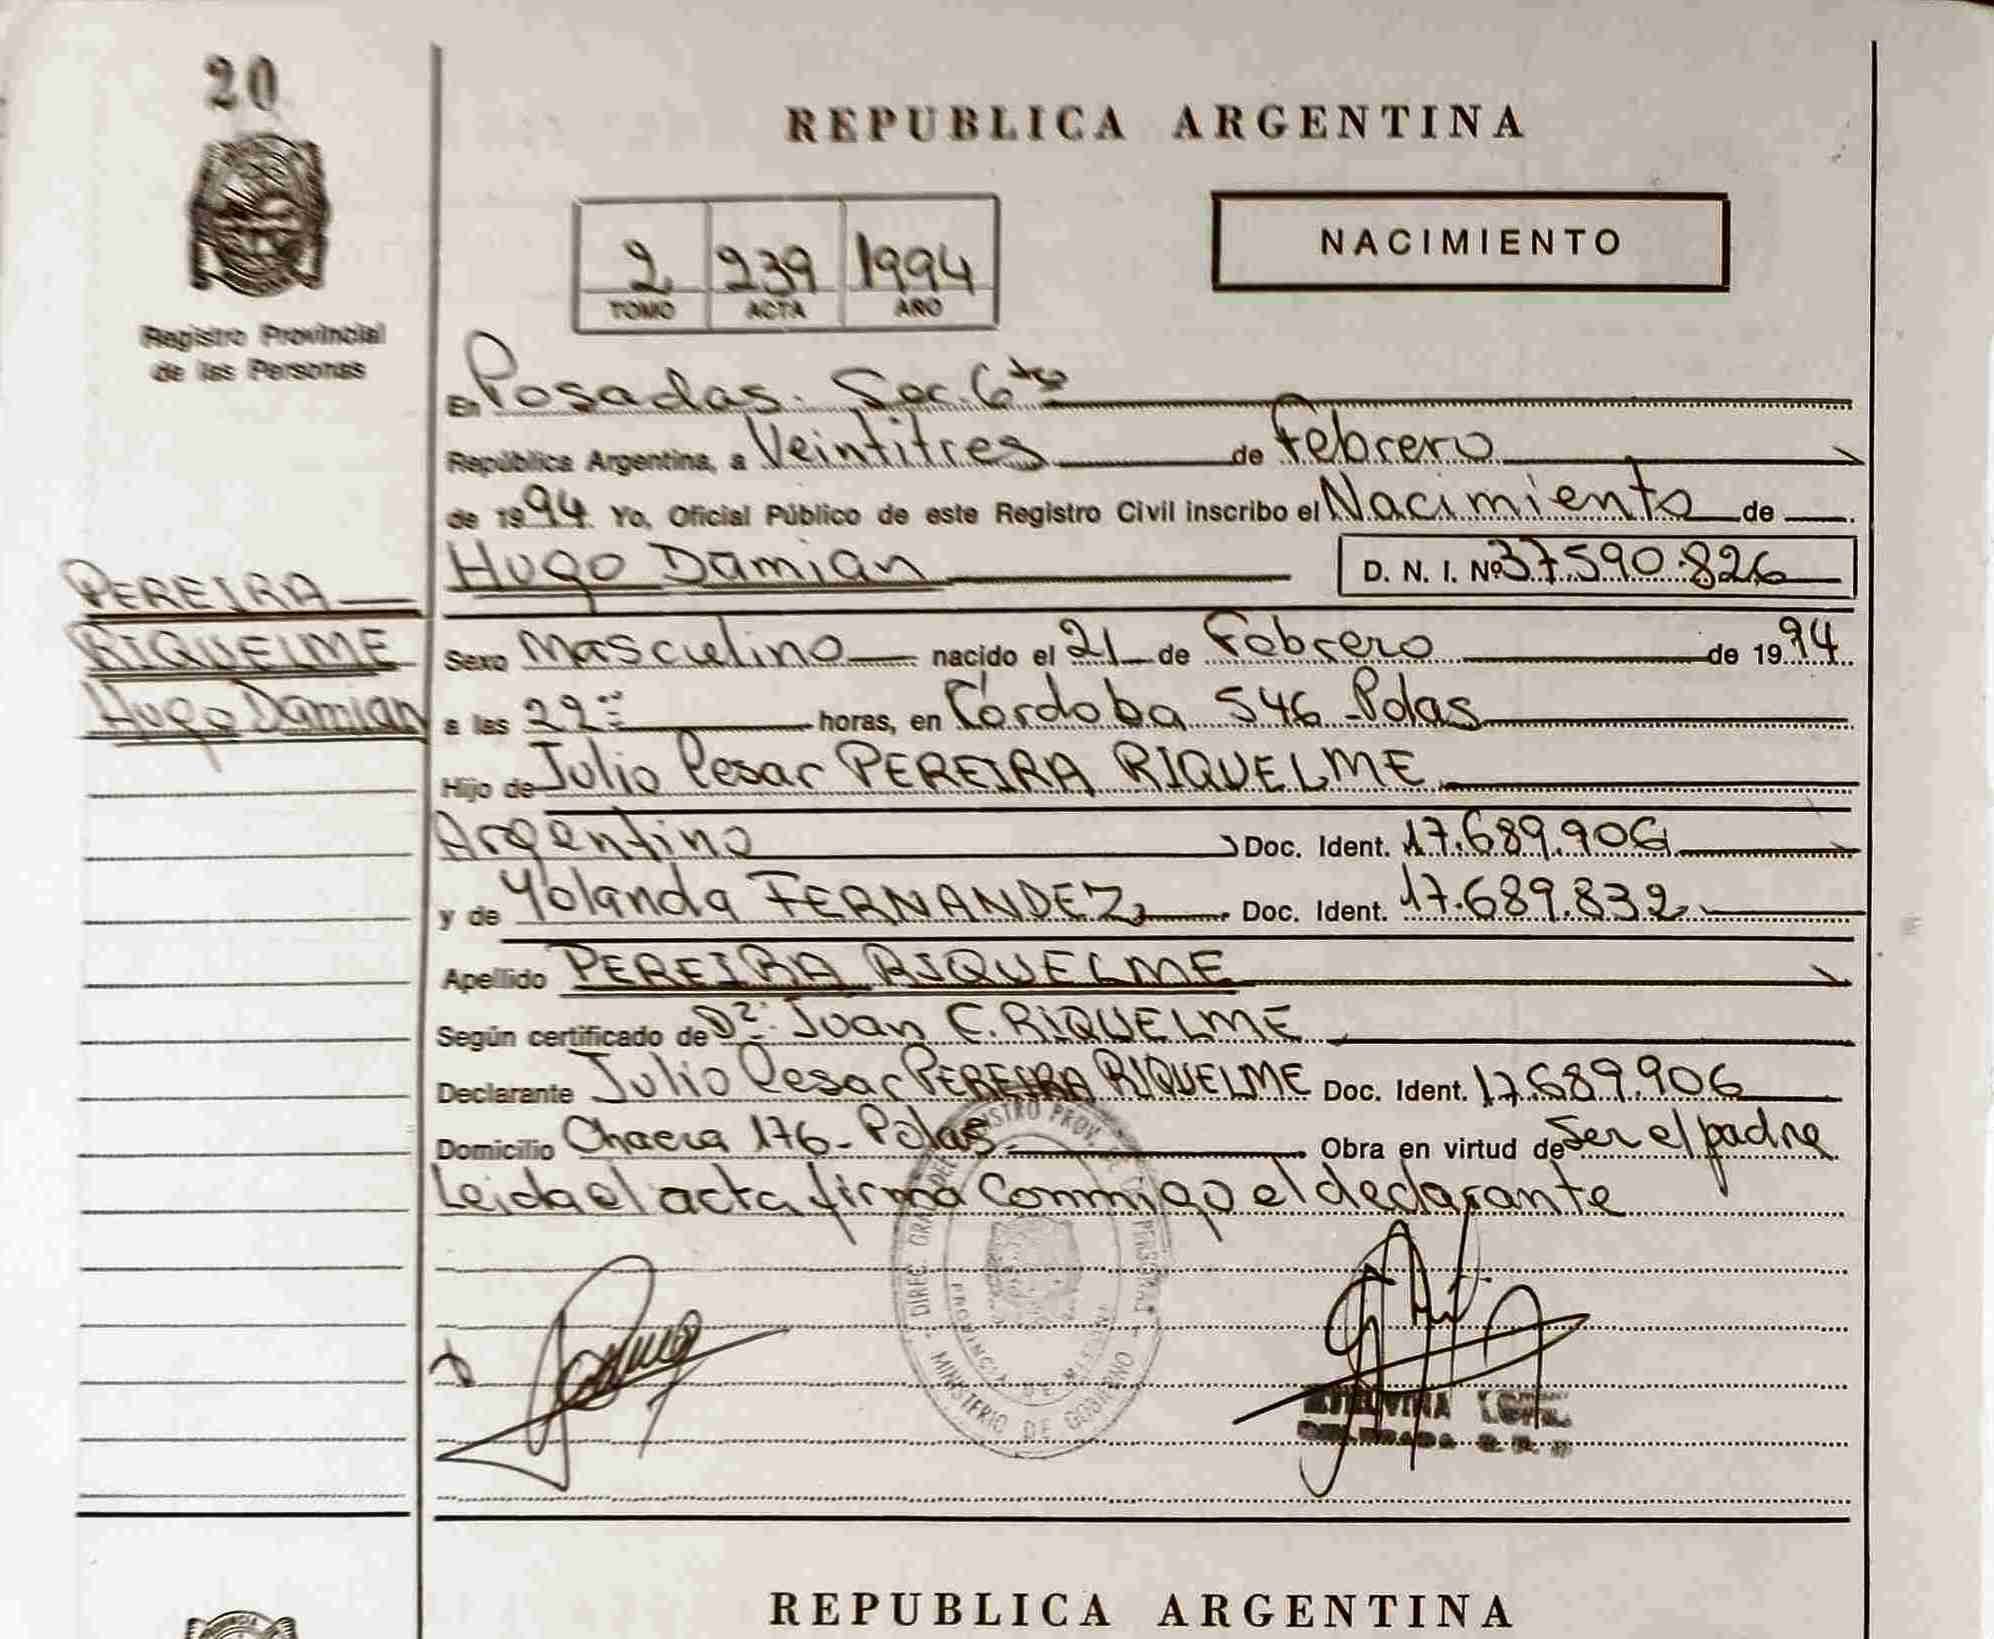 20
Registro Provincial
de las Personas
REPUBLICA ARGENTINA
2 239 1994
TOMO ACTA AÑO
NACIMIENTO
En Posadas. Sec. 6ta
República Argentina, a Veintitres de Febrero
de 1994 Yo, Oficial Público de este Registro Civil inscribo el Nacimiento de
Hugo Damian D. N. I. Nº 37.590.826
PEREIRA
RIQUELME
Hugo Damian
Sexo Masculino nacido el 21 de Febrero de 1994
a las 22 horas, en Córdoba 546 Pdas
Hijo de Julio Cesar PEREIRA RIQUELME
Argentino Doc. Ident. 17.689.906
y de Yolanda FERNANDEZ Doc. Ident. 17.689.832
Apellido PEREIRA RIQUELME
Según certificado de Dr. Juan C. RIQUELME
Declarante Julio Cesar PEREIRA RIQUELME Doc. Ident. 17.689.906
Domicilio Chacra 176 - Pdas Obra en virtud de Ser el padre
Leida el acta firma Conmigo el declarante
DIREC. GRAL. DEL REGISTRO PROV. DE LAS PERSONAS
PROVINCIA DE MISIONES
MINISTERIO DE GOBIERNO
REPUBLICA ARGENTINA